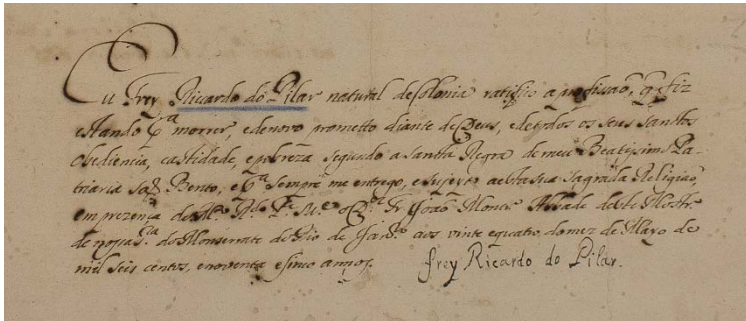 Eu Frey Ricardo do Pilar natural de Colonia ratifico a profissaõ, q̃ fiz
estando p.ª morrer, e denovo prometto diante de Deus, e de todos os seus Santos
obediencia, castidade, e pobreza segundo a Santa Regra de meu Beatissimo Pa-
triarca Saõ Bento, e p.ª sempre me entrego, e sujeito a esta sua sagrada Religiaõ
em prezença do M. R.do P.e Fr. Joaõ Abbade deste Mostr.º
de nossa S.ra do Monserrate do Rio de Jan.ro aos vinte equatro do mez de Mayo de
mil seis centos, enoventa esinco annos. frey Ricardo do Pilar.